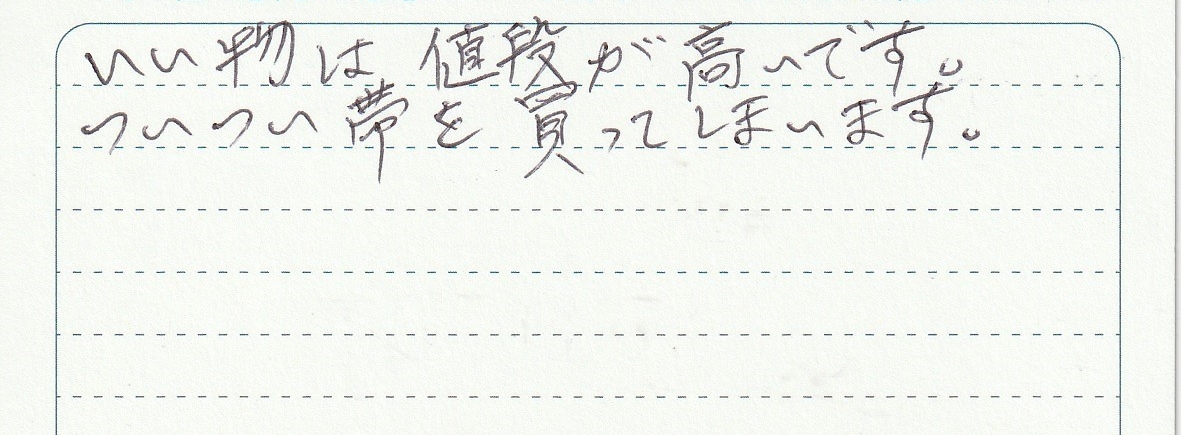 いい物は値段が高いです。
ついつい帯を買ってしまいます。